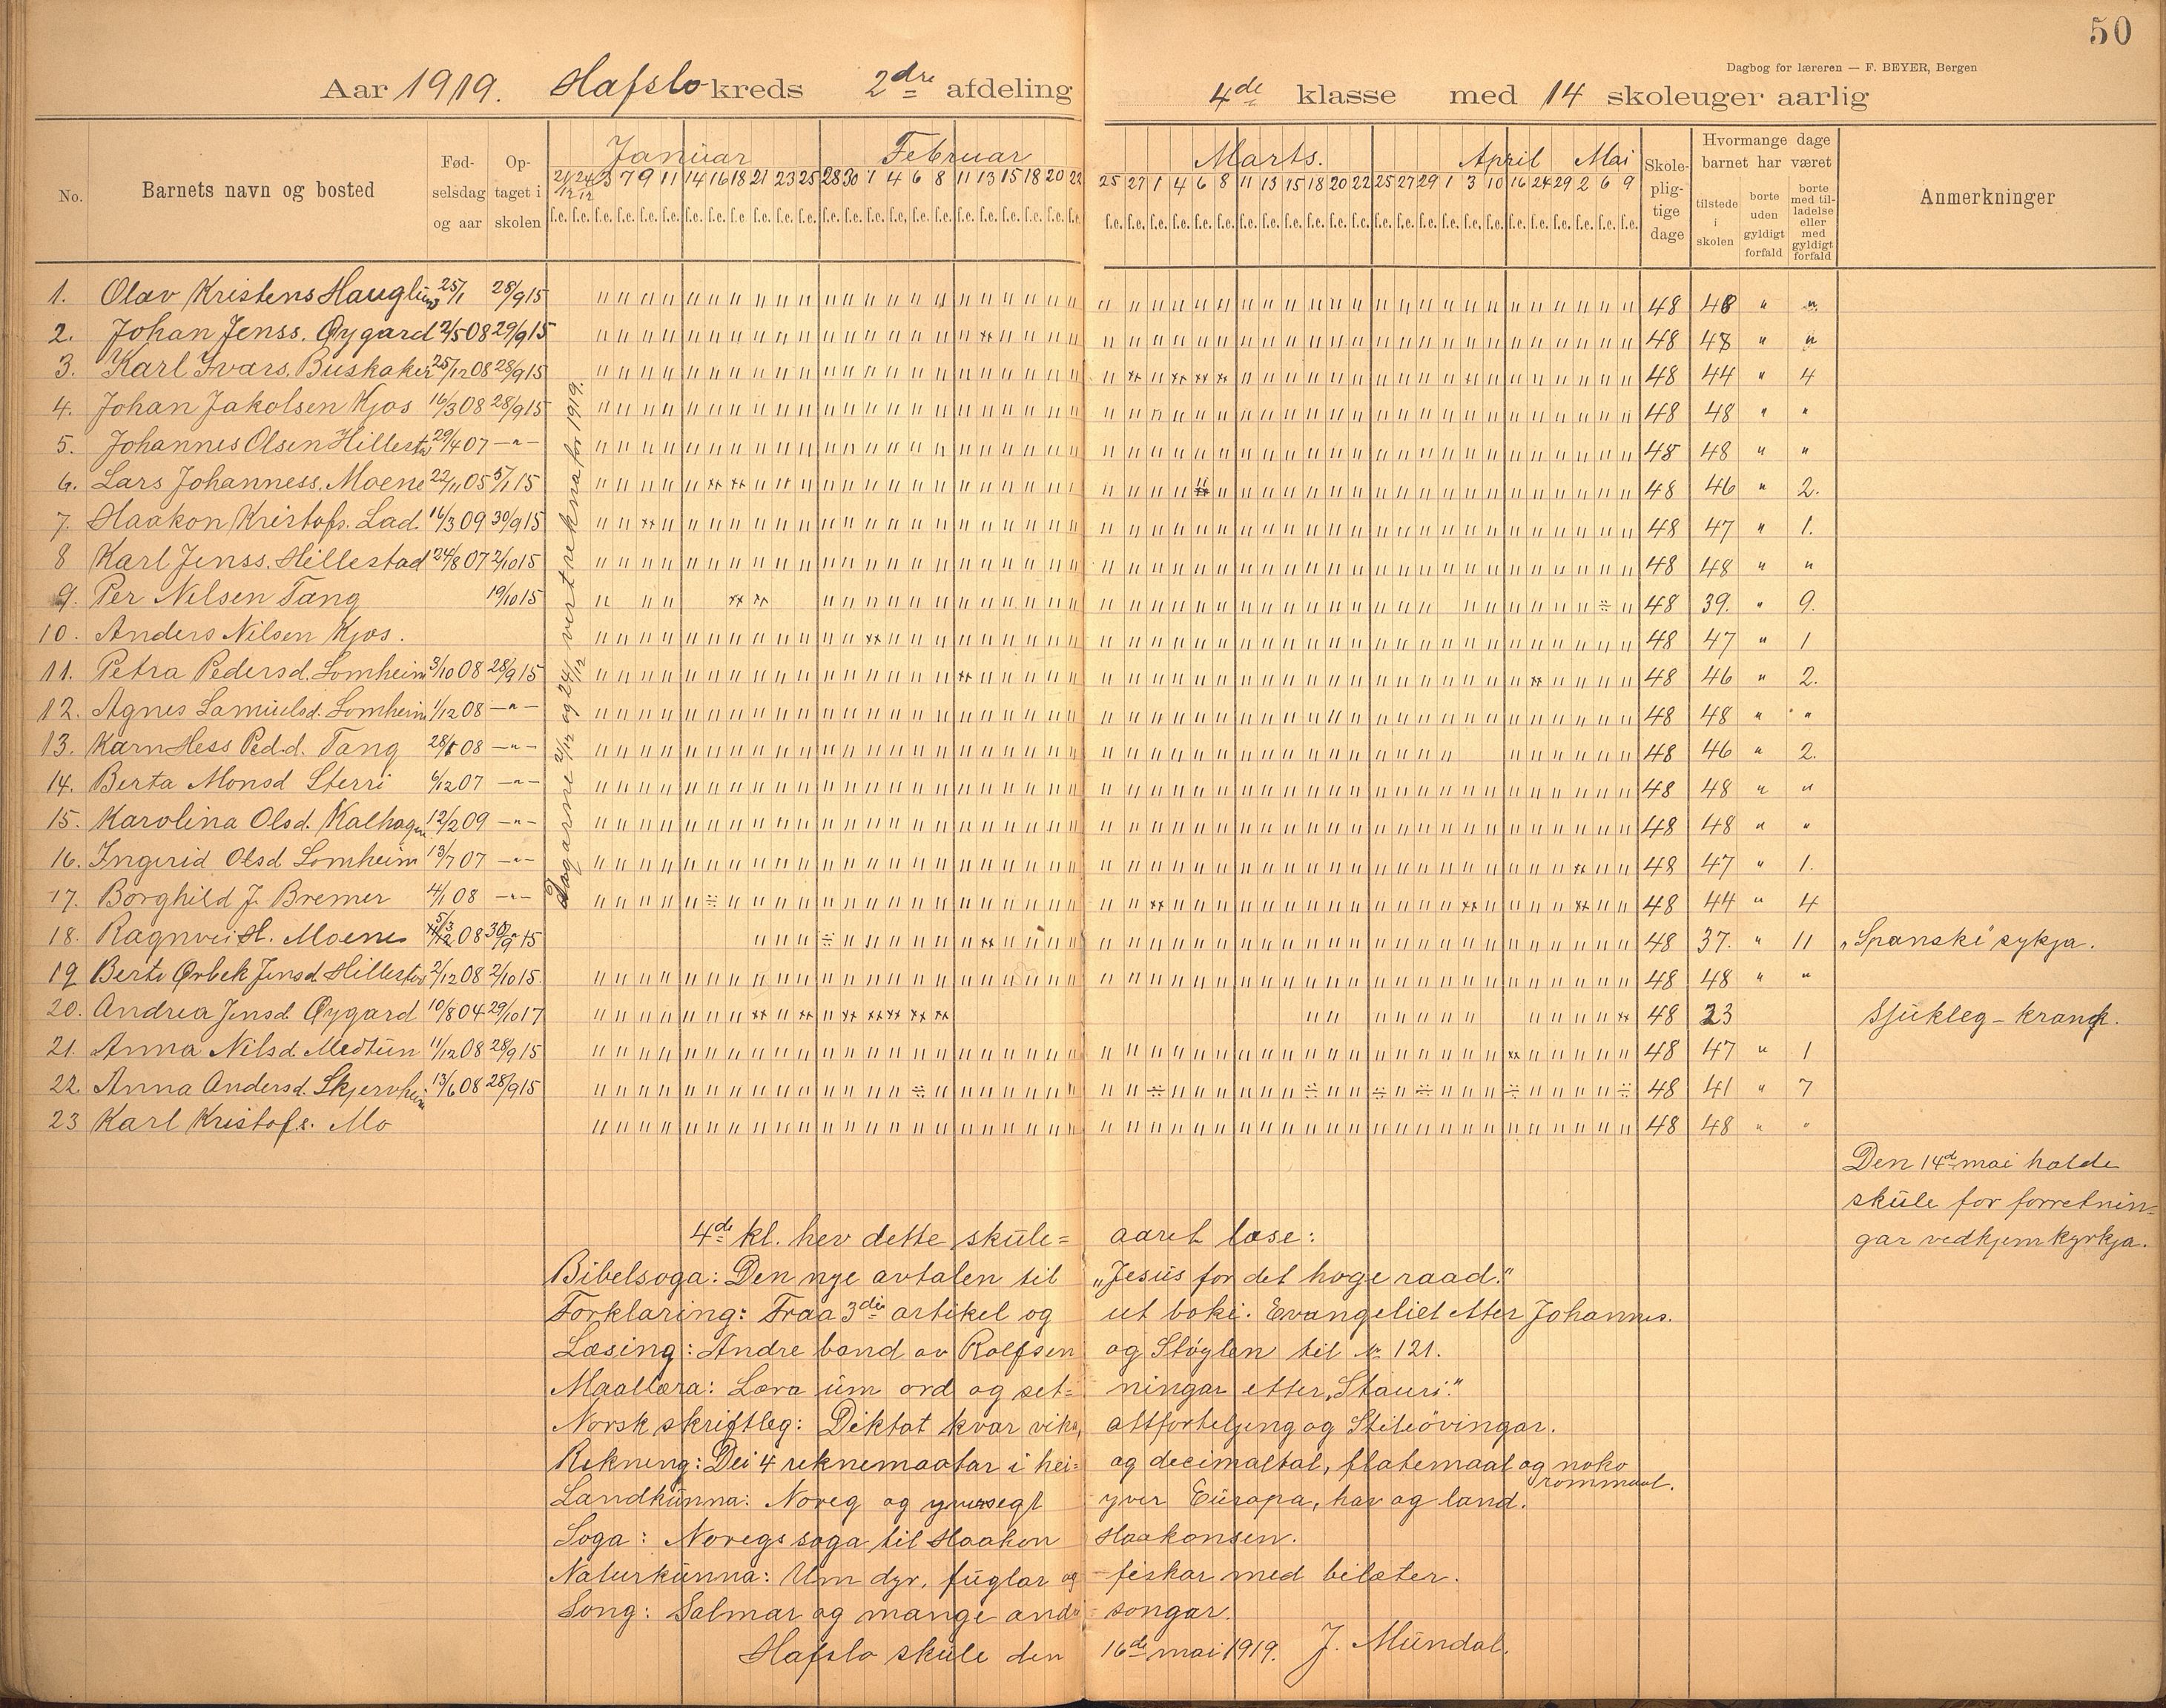 50
Dagbog for læreren — F. BEYER, Bergen
Aar 1919. Hafslo kreds 2dre afdeling 4de klasse med 14 skoleuger aarlig
No. Barnets navn og bosted Fødselsdag og aar Optaget i skolen Januar Februar Marts. April Mai Skolepligtige dage Hvormange dage barnet har været Anmerkninger
tilstede i skolen borte uden gyldigt forfald borte med tilladelse eller med gyldigt forfald
21/12 24/12 3 7 9 11 14 16 18 21 23 25 28 30 1 4 6 8 11 13 15 18 20 22 25 27 1 4 6 8 11 13 15 18 20 22 25 27 29 1 3 10 16 24 29 2 6 9
Dagarne 21/12 og 24/12 vert rekna for 1919.
1. Olav Kristens Hauglund 25/1 28/9 15 48 48 " "
2. Johan Jenss. Øygard 2/5 08 29/9 15 48 48 " "
3. Karl Ivars. Buskaker 25/12 08 28/9 15 48 44 " 4
4. Johan Jakolsen Kjos 16/3 08 28/9 15 48 48 " "
5. Johannes Olsen Hillestad 29/4 07 —"— 48 48 " "
6. Lars Johanness. Moene 22/11 05 5/1 15 48 46 " 2.
7. Haakon Kristofs. Lad. 16/3 09 30/9 15 48 47 " 1.
8 Karl Jenss. Hillestad 24/8 07 2/10 15 48 48 " "
9. Per Nilsen Tang 19/10 15 48 39. " 9.
10. Anders Nilsen Kjos. 48 47 " 1
11. Petra Pedersd. Lomheim 3/10 08 28/9 15 48 46 " 2.
12. Agnes Samuelsd. Lomheim 1/12 08 —"— 48 48 " "
13. Karn Hess Ped.d. Tang 28/8 08 —"— 48 46 " 2.
14. Berta Monsd Sterri 6/12 07 —"— 48 48 " "
15. Karolina Olsd. Kalhagen 12/2 09 —"— 48 48 " "
16. Ingerid Olsd Lomheim 13/7 07 —"— 48 47 " 1.
17. Borghild J. Bremer 4/1 08 —"— 48 44 " 4
18. Ragnvei H. Moene 5/3 08 30/9 15 48 37. " 11 "Spanski" sykja.
19 Berte Ørbek Jensd Hillestad 2/12 08 2/10 15. 48 48 " "
20. Andrea Jensd. Øygard 10/8 04 29/10 17 48 23 Sjukleg – krank.
21. Anna Nilsd. Medtun 11/12 08 28/9 15 48 47 " 1
22. Anna Andersd. Skjervheim 13/6 08 28/9 15 48 41 " 7
23 Karl Kristofs. Mo 48 48 " "
Den 14de mai halde
skule for forretnin=
gar vedkjem kyrkja.
4de kl. hev dette skule= aaret læse:
Bibelsoga: Den nye avtalen til "Jesus for det høge raad."
Forklaring: Fraa 3die artikel og ut boki. Evangeliet etter Johannes.
Læsing: Andre band av Rolfsen og Støylen til № 121.
Maallæra: Læra um ord og set= ningar etter "Stauri."
Norsk skriftleg: Diktat kvar vika, attforteljing og Stiløvingar.
Rekning: Dei 4 reknemaatar i hei= og decimaltal, flatemaal og noko rommaal.
Landkunna: Noreg og yversegt yver Europa, hav og land.
Soga: Noregs soga til Haakon Haakonsen.
Naturkunna: Um dyr, fuglar og fiskar med bilæter.
Song: Salmar og mange andre songar.
Hafslo skule den 16de mai 1919. J. Mundal.